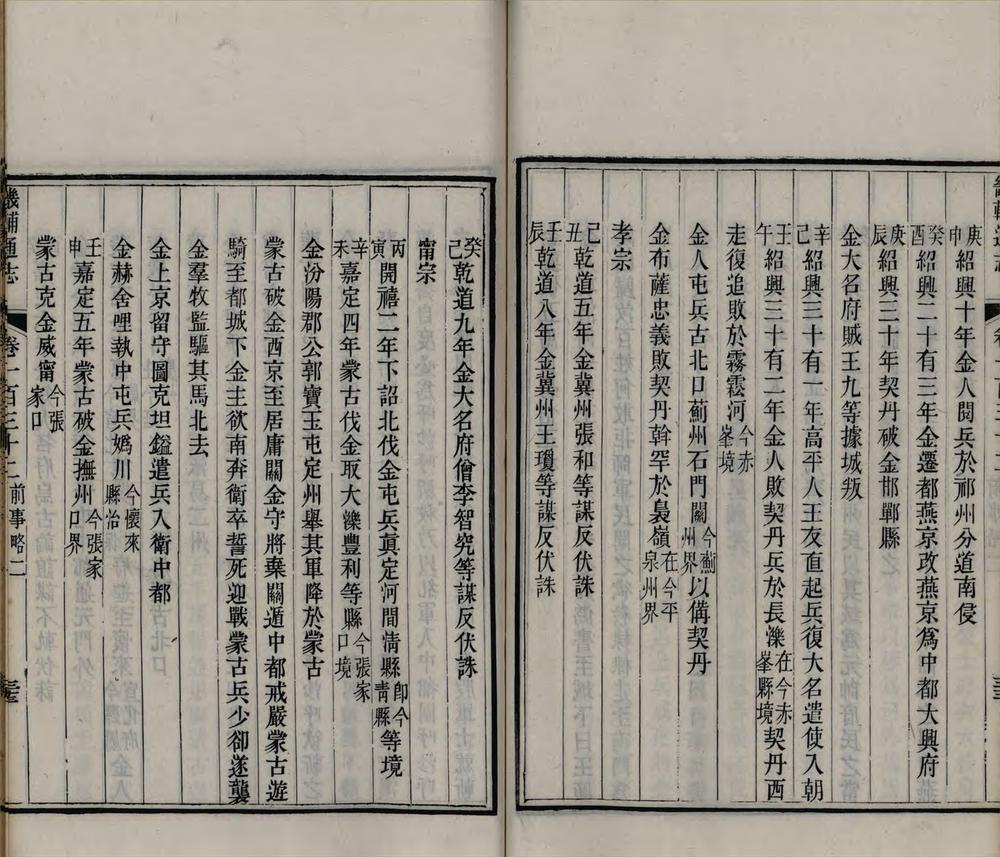 庚申紹興十年金人閱兵於祁州分道南侵
癸酉紹興二十有三年金遷都燕京改燕京爲中都大興府
庚辰紹興三十年契丹破金邯鄲縣
金大名府賊王九等據城叛
辛巳紹興三十有一年高平人王友直起兵復大名遣使入朝
壬午紹興三十有二年金人敗契丹兵於長濼在今赤峯縣境契丹西
走復追敗於霧霐河今赤峯境
金人屯兵古北口薊州石門關今薊州界以備契丹
金布薩忠義敗契丹斡罕於裊嶺在今平泉州界
孝宗
己丑乾道五年金冀州張和等謀反伏誅
壬辰乾道八年金冀州王瓊等謀反伏誅
癸巳乾道九年金大名府僧李智究等謀反伏誅
甯宗
丙寅開禧二年下詔北伐金屯兵眞定河間清縣卽今青縣等境
辛未嘉定四年蒙古伐金取大濼豐利等縣今張家口境
金汾陽郡公郭寶玉屯定州舉其軍降於蒙古
蒙古破金西京至居庸關金守將棄關遁中都戒嚴蒙古遊
騎至都城下金主欲南奔衛卒誓死迎戰蒙古兵少卻遂襲
金羣牧監驅其馬北去
金上京留守圖克坦鎰遣兵入衛中都
金赫舍哩執中屯兵嬀川今懷來縣治
壬申嘉定五年蒙古破金撫州今張家口界
蒙古克金威甯今張家口
畿輔通志 卷一百三十二 前事略二